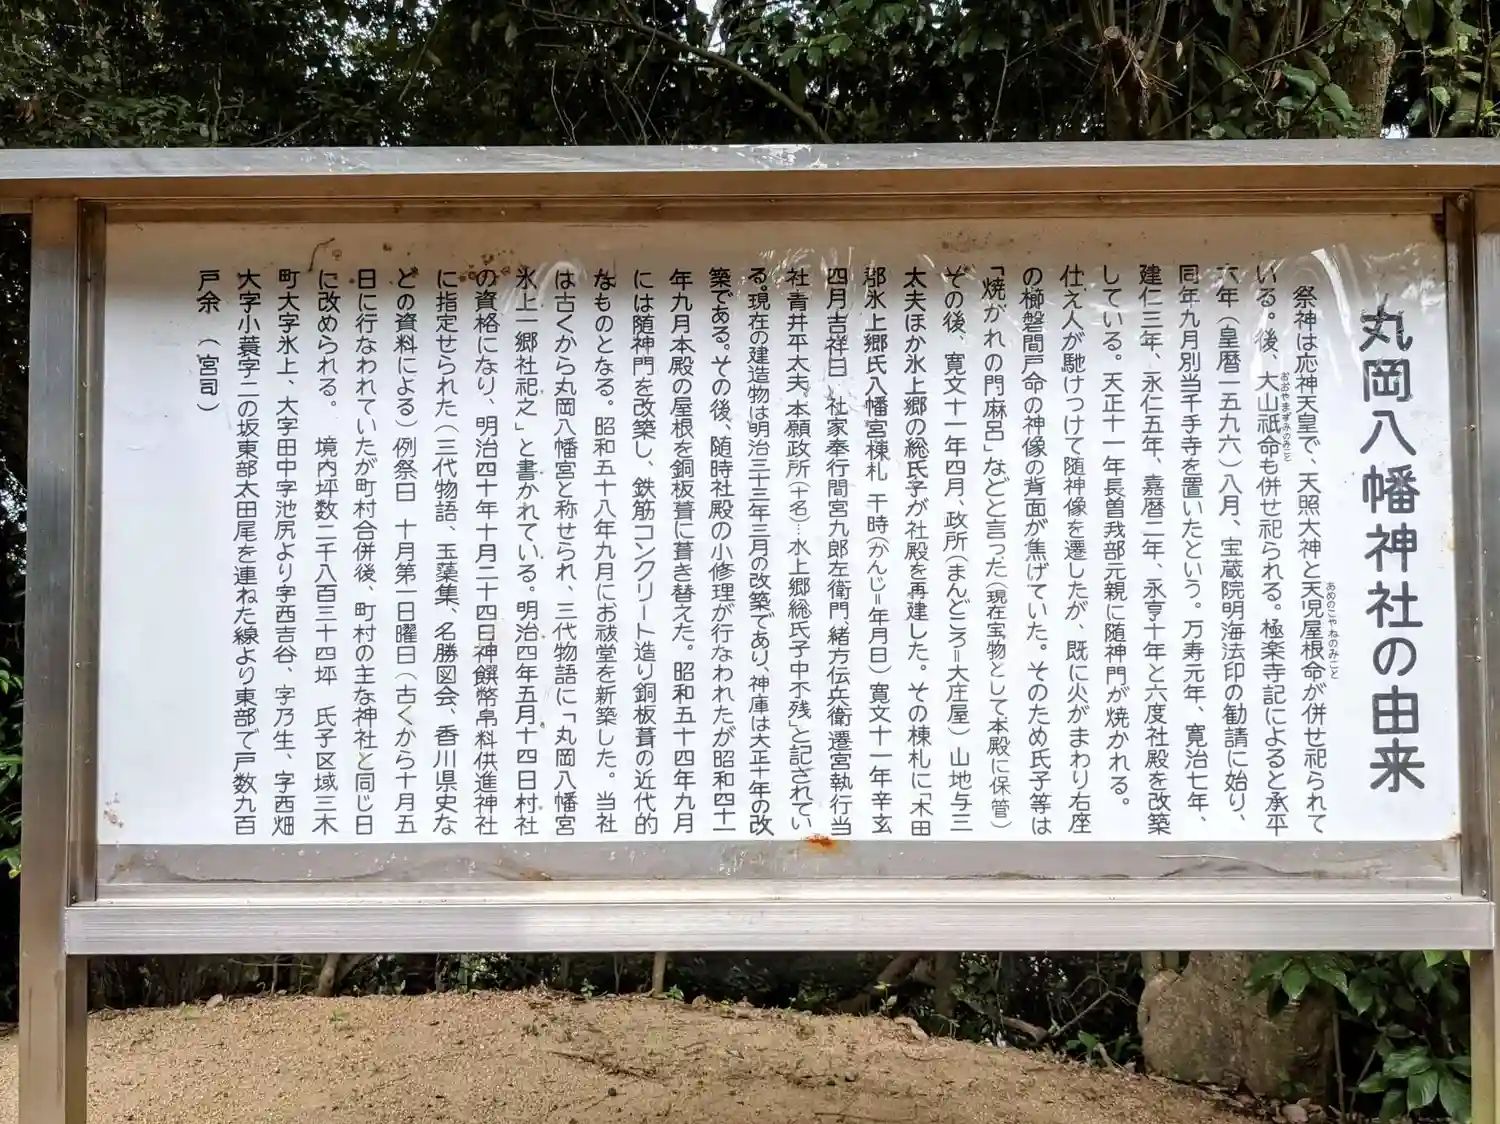 丸岡八幡神社の由来
祭神は応神天皇で、天照大神と天児屋根命が併せ祀られて
あめのこやねのみこと
いる。後、大山祇命も併せ祀られる。極楽寺記によると承平
おおやまずみのみこと
六年(皇暦一五九六)八月、宝蔵院明海法印の勧請に始り、
同年九月別当千手寺を置いたという。万寿元年、寛治七年、
建仁三年、永仁五年、嘉暦二年、永亨十年と六度社殿を改築
している。天正十一年長曽我部元親に随神門が焼かれる。
仕え人が馳けつけて随神像を遷したが、既に火がまわり右座
の櫛磐間戸命の神像の背面が焦げていた。そのため氏子等は
「焼がれの門麻呂」などと言った(現在宝物として本殿に保管)
その後、寛文十一年四月、政所(まんどころ=大庄屋)山地与三
太夫ほか氷上郷の総氏子が社殿を再建した。その棟札に「木田
郡氷上郷氏八幡宮棟札 干時(かんじ=年月日)寛文十一年辛亥
四月吉祥日 社家奉行間宮九郎左衛門、緒方伝兵衛遷宮執行当
社青井平太夫。本願政所(十名)…氷上郷総氏子中不残」と記されてい
る。現在の建造物は明治三十三年三月の改築であり、神庫は大正十年の改
築である。その後、随時社殿の小修理が行なわれたが昭和四十一
年九月本殿の屋根を銅板葺に葺き替えた。昭和五十四年九月
には随神門を改築し、鉄筋コンクリート造り銅板葺の近代的
なものとなる。昭和五十八年九月にお祓堂を新築した。当社
は古くから丸岡八幡宮と称せられ、三代物語に「丸岡八幡宮
氷上一郷社祀之」と書かれている。明治四年五月十四日村社
の資格になり、明治四十年十月二十四日神饌幣帛料供進神社
に指定せられた(三代物語、玉藻集、名勝図会、香川県史な
どの資料による)例祭日 十月第一日曜日(古くから十月五
日に行なわれていたが町村合併後、町村の主な神社と同じ日
に改められる。 境内坪数二千八百三十四坪 氏子区域三木
町大字氷上、大字田中字池尻より字西吉谷、字乃生、字西畑
大字小蓑字二の坂東部太田尾を連ねた線より東部で戸数九百
戸余 (宮司)